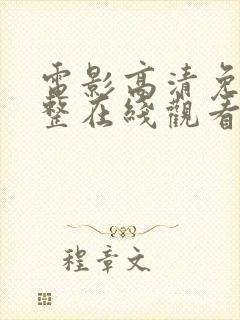 電影高清免
整在綫觀看
程章文